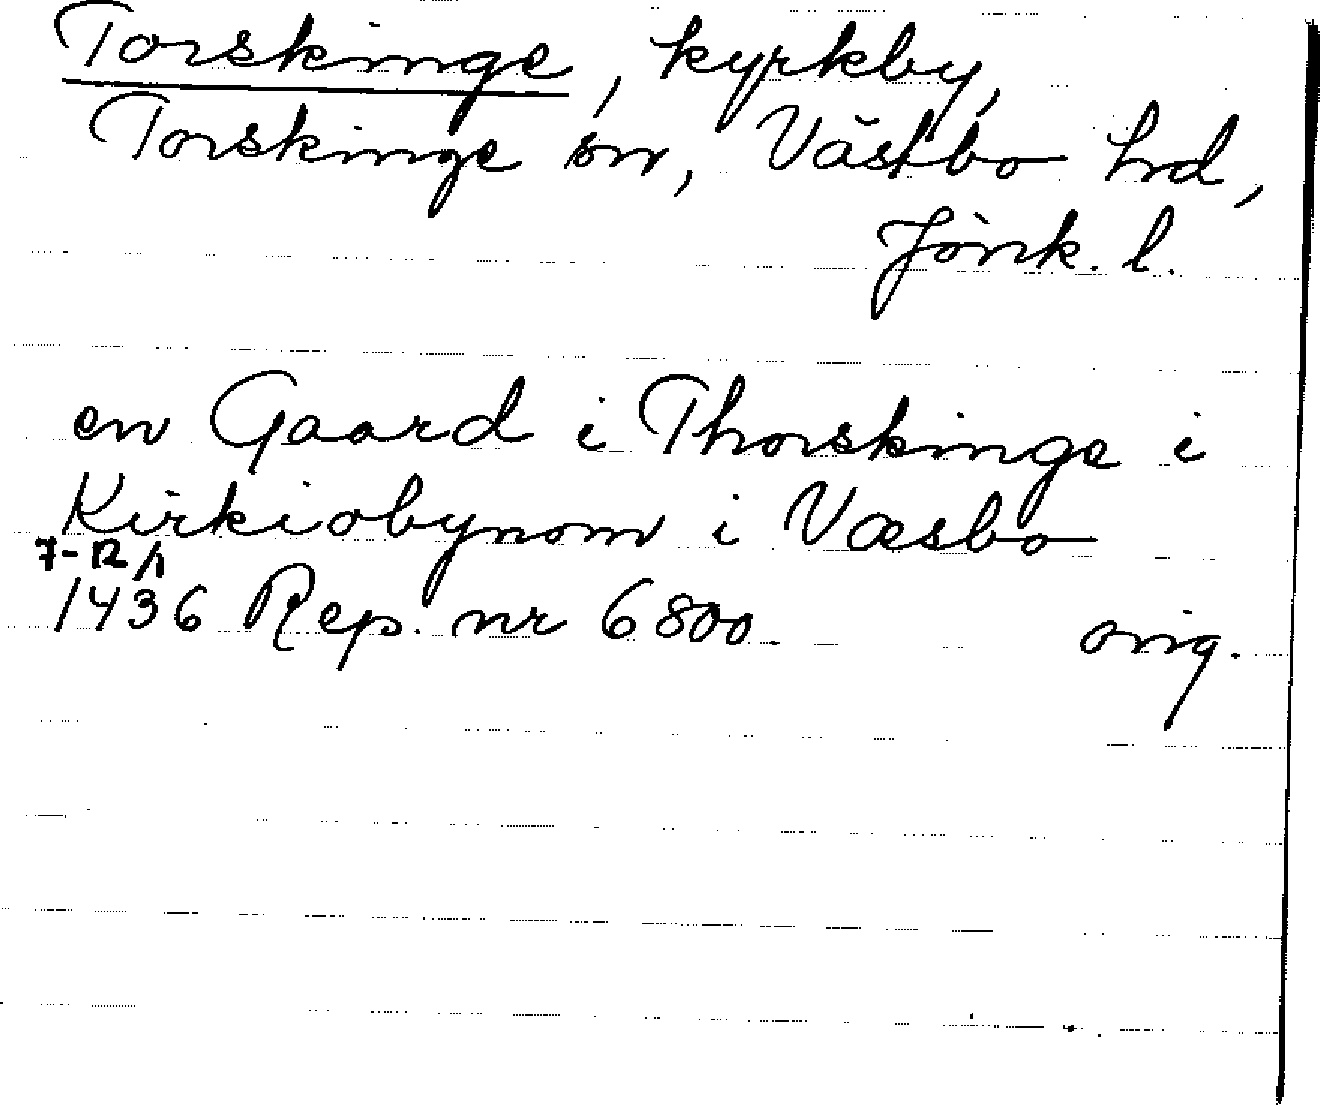 Torskinge, kyrkby,
Torskinge sn, Västbo hd,
Jönk. l.
en Gaard i Thorskinge i
Kirkiobynom i Væsbo
7-12/1
1436 Rep. nr 6800. orig.